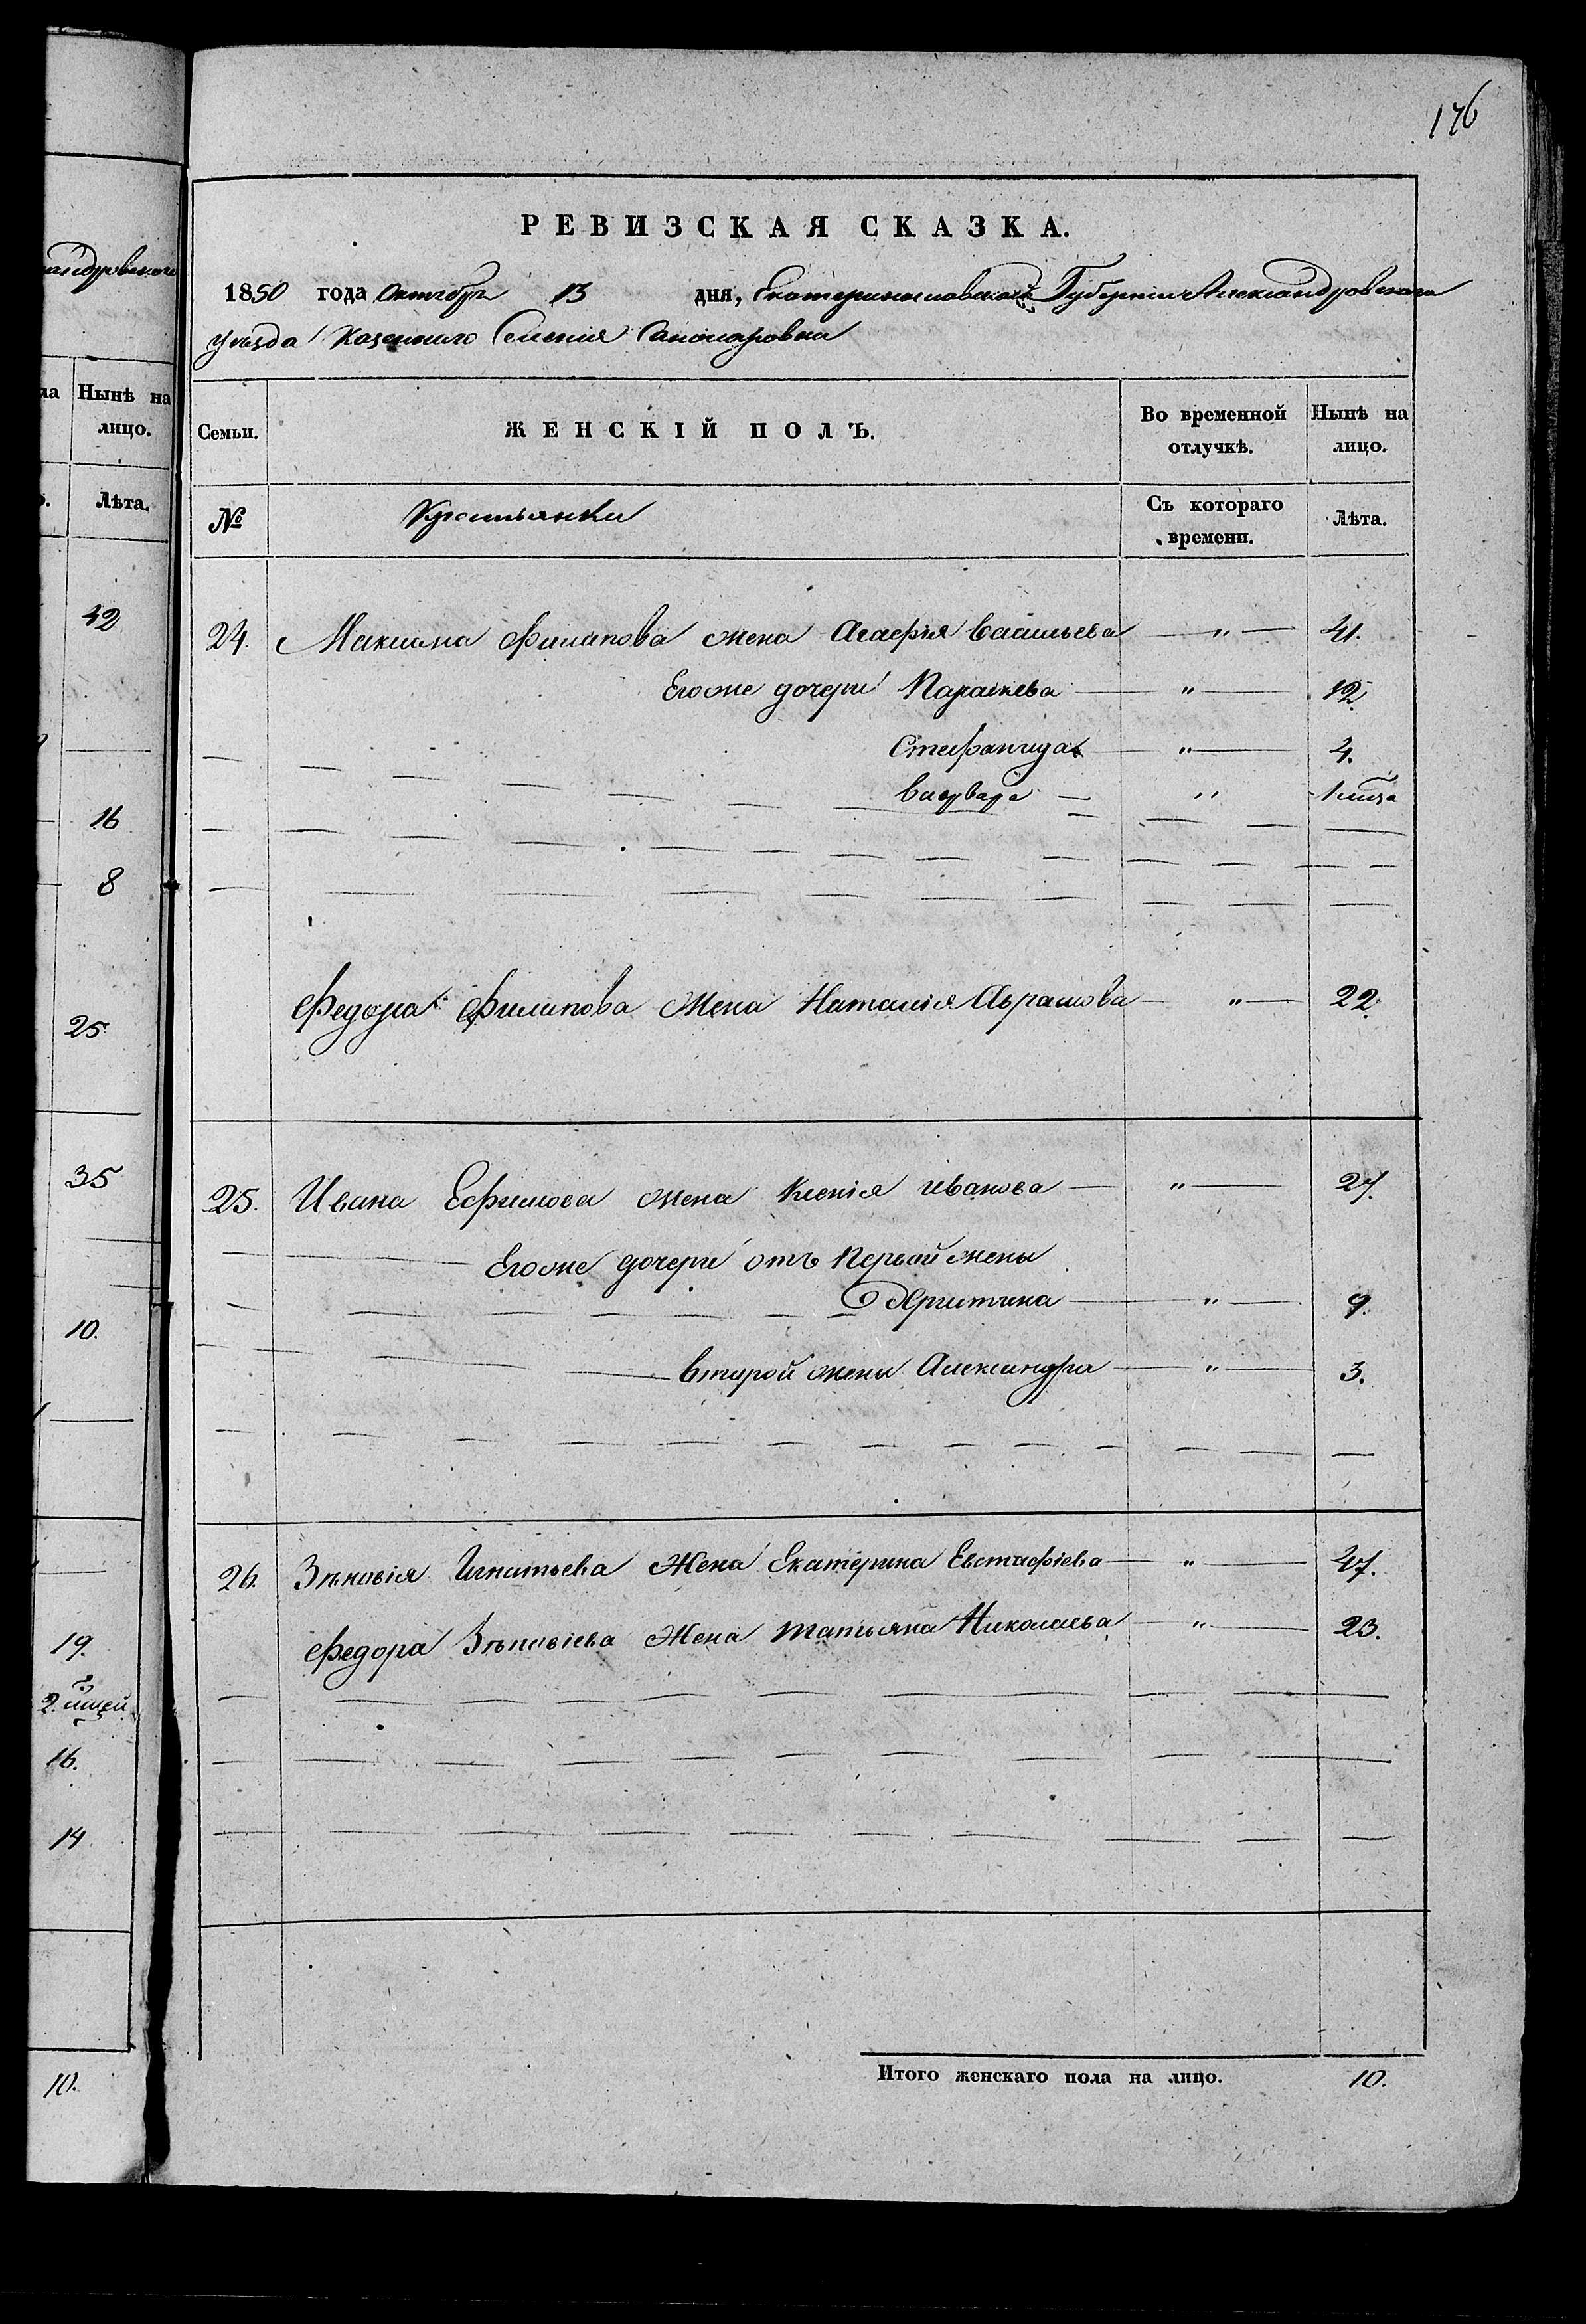 176
андровского
РЕВИЗСКАЯ СКАЗКА.
1850 года Октября 13 дня, Екатеринославской Губернии Александровского
уезда Казенного Селения Санжаровки
ла Нынѣ на лицо.
Лѣта.
42
16
8
25
35
10.
19.
2. мцей
16.
14
10.
Семьи. ЖЕНСКІЙ ПОЛЪ. Во временной отлучкѣ. Нынѣ на лицо.
№ Крестьянки Съ котораго времени. Лѣта.
24. Максима Филипова жена Агафія Васильева — " — 41.
Егоже дочери Параскева — " — 12.
Стефанида — " — 4.
Варвара — " 1 мца
Федора Филипова Жена Наталія Аврамова — " — 22.
25. Ивана Ефимова жена Ксенія Иванова — " — 27.
Егоже дочери отъ Первой жены
Христина — " — 9.
второй жены Александра — " — 3.
26. Зѣновія Игнатьева Жена Екатерина Евстафіева — " — 47.
Федора Зѣновіева Жена Татьяна Николаева — " — 23.
Итого женскаго пола на лицо. 10.